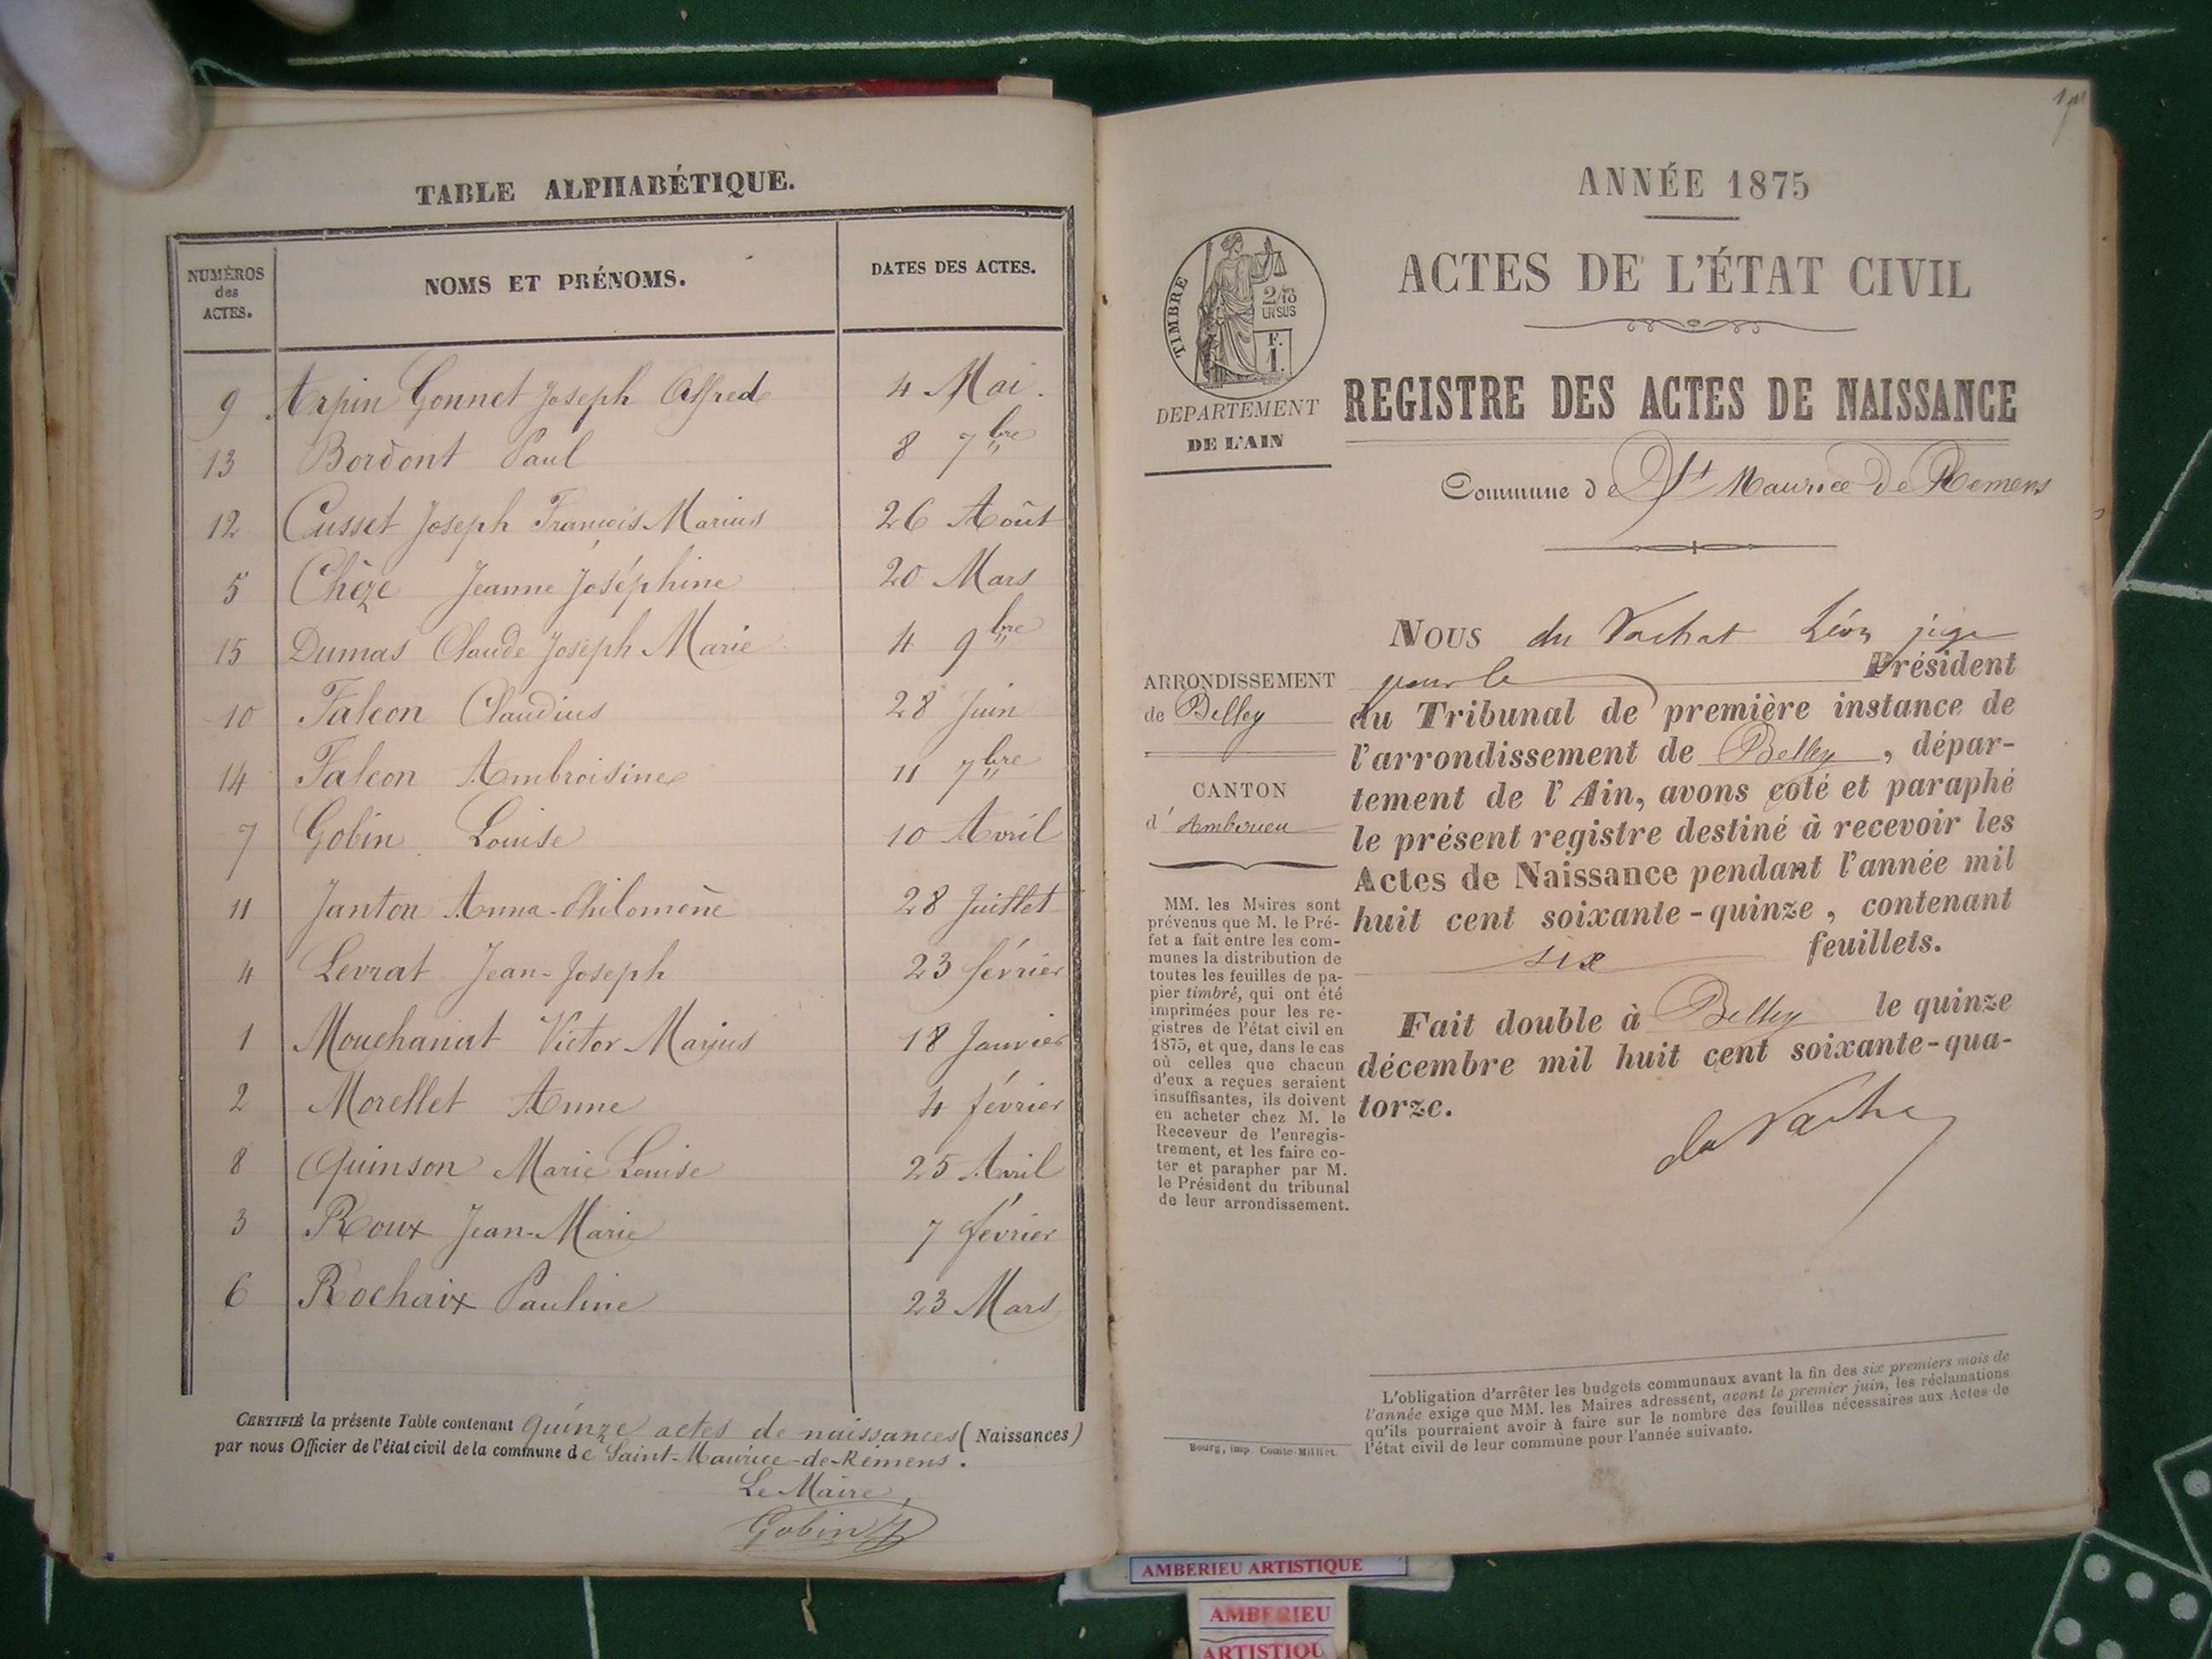 TABLE ALPHABÉTIQUE.
NUMÉROS des ACTES. NOMS ET PRÉNOMS. DATES DES ACTES.
9 Arpin Gonnet Joseph Alfred 4 Mai.
13 Bordont Paul 8 7bre
12 Cusset Joseph François Marius 26 Août
5 Chêze Jeanne Joséphine 20 Mars
15 Dumas Claude Joseph Marie 4 9bre
10 Falcon Claudius 28 Juin
14 Falcon Ambroisine 11 7bre
7 Gobin Louise 10 Avril
11 Janton Anna-Philomène 28 Juillet
4 Levrat Jean-Joseph 23 février
1 Mouchanat Victor Marius 18 Janvier
2 Morellet Anne 4 février
8 Quinson Marie Louise 25 Avril
3 Roux Jean-Marie 7 février
6 Rochaix Pauline 23 Mars
CERTIFIÉ la présente Table contenant quinze actes de naissances (Naissances)
par nous Officier de l'état civil de la commune de Saint-Maurice-de-Rémens.
Le Maire,
Gobin
ANNÉE 1875
ACTES DE L'ÉTAT CIVIL
REGISTRE DES ACTES DE NAISSANCE
Commune de St Maurice de Remens
TIMBRE
2/10
EN SUS
F.
1.
DEPARTEMENT
DE L'AIN
ARRONDISSEMENT
de Belley
CANTON
d'Amberieu
MM. les Maires sont
prévenus que M. le Pré-
fet a fait entre les com-
munes la distribution de
toutes les feuilles de pa-
pier timbré, qui ont été
imprimées pour les re-
gistres de l'état civil en
1875, et que, dans le cas
où celles que chacun
d'eux a reçues seraient
insuffisantes, ils doivent
en acheter chez M. le
Receveur de l'enregis-
trement, et les faire co-
ter et parapher par M.
le Président du tribunal
de leur arrondissement.
Bourg, imp. Comte-Milliet.
NOUS du Vachat Léon juge
pour le Président
du Tribunal de première instance de
l'arrondissement de Belley, dépar-
tement de l'Ain, avons coté et paraphé
le présent registre destiné à recevoir les
Actes de Naissance pendant l'année mil
huit cent soixante-quinze, contenant
six feuillets.
Fait double à Belley le quinze
décembre mil huit cent soixante-qua-
torze.
du Vachat
L'obligation d'arrêter les budgets communaux avant la fin des six premiers mois de
l'année exige que MM. les Maires adressent, avant le premier juin, les réclamations
qu'ils pourraient avoir à faire sur le nombre des feuilles nécessaires aux Actes de
l'état civil de leur commune pour l'année suivante.
AMBERIEU ARTISTIQUE
AMBERIEU
ARTISTIQU